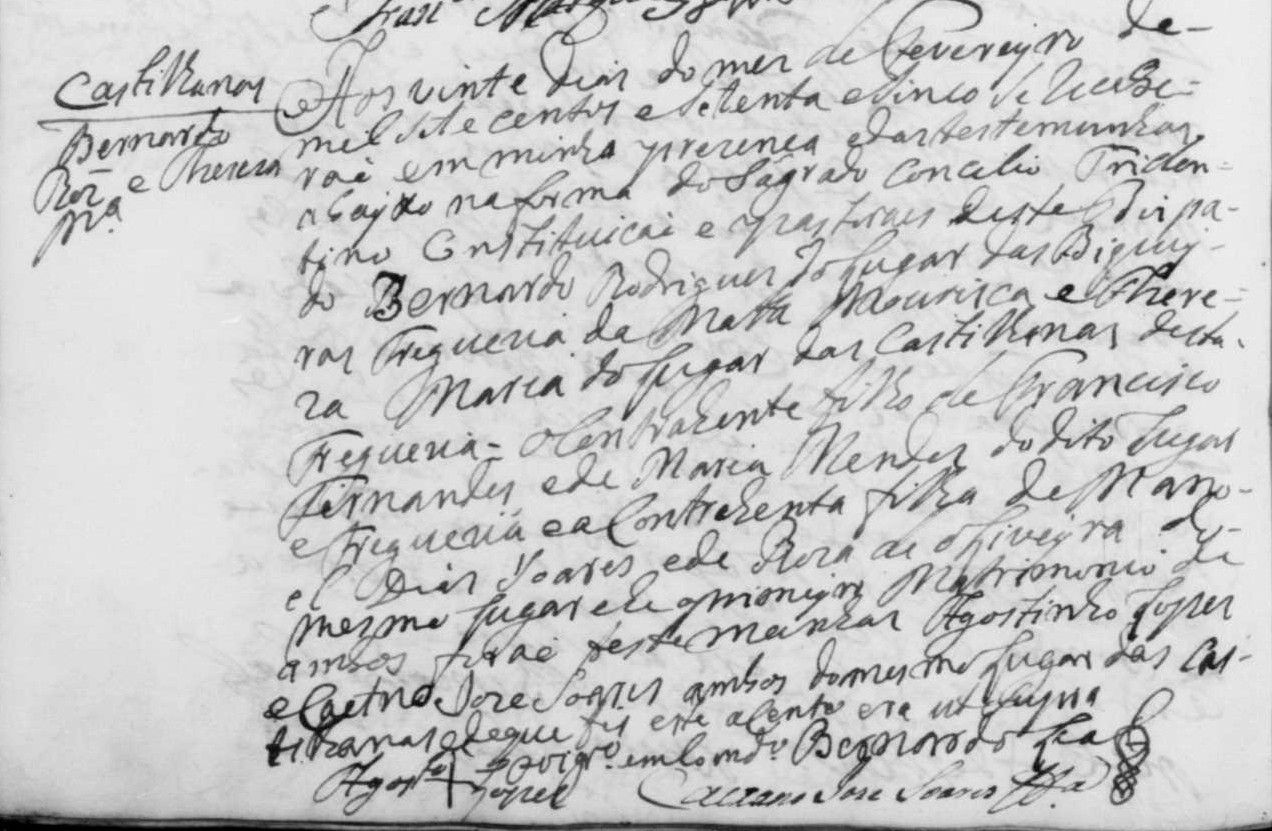 Castilhanas
Bernardo
Roiz e Thereza
Mª
Aos vinte dias do mes de Fevereyro de
mil sete centos e setenta e sinco se recebe-
raõ em minha prezença e das testemunhas
abayxo na forma do Sagrado Concilio Triden-
tino Constituicaõ e pastoraes deste Bispa-
do Bernardo Rodrigues do Lugar das
ras Freguezia da Mata Mourisca e There-
za Maria do Lugar das Castilhanas desta
Freguezia = o Contrahente filho de Francisco
Fernandes e de Maria Mendes do dito Lugar
e Freguezia e a Contrahenta filha de Mano-
el Dias Soares e de Roza de Oliveyra do
mesmo Lugar e he o primeyro Matrimonio de
ambos foraõ testemunhas Agostinho Lopes
e Caetno Joze Soares ambos do mesmo Lugar das Cas-
tilhanas e de que fis este acento era ut supra
Bernardo
Agostº + Lopes Caetano Joze Soares